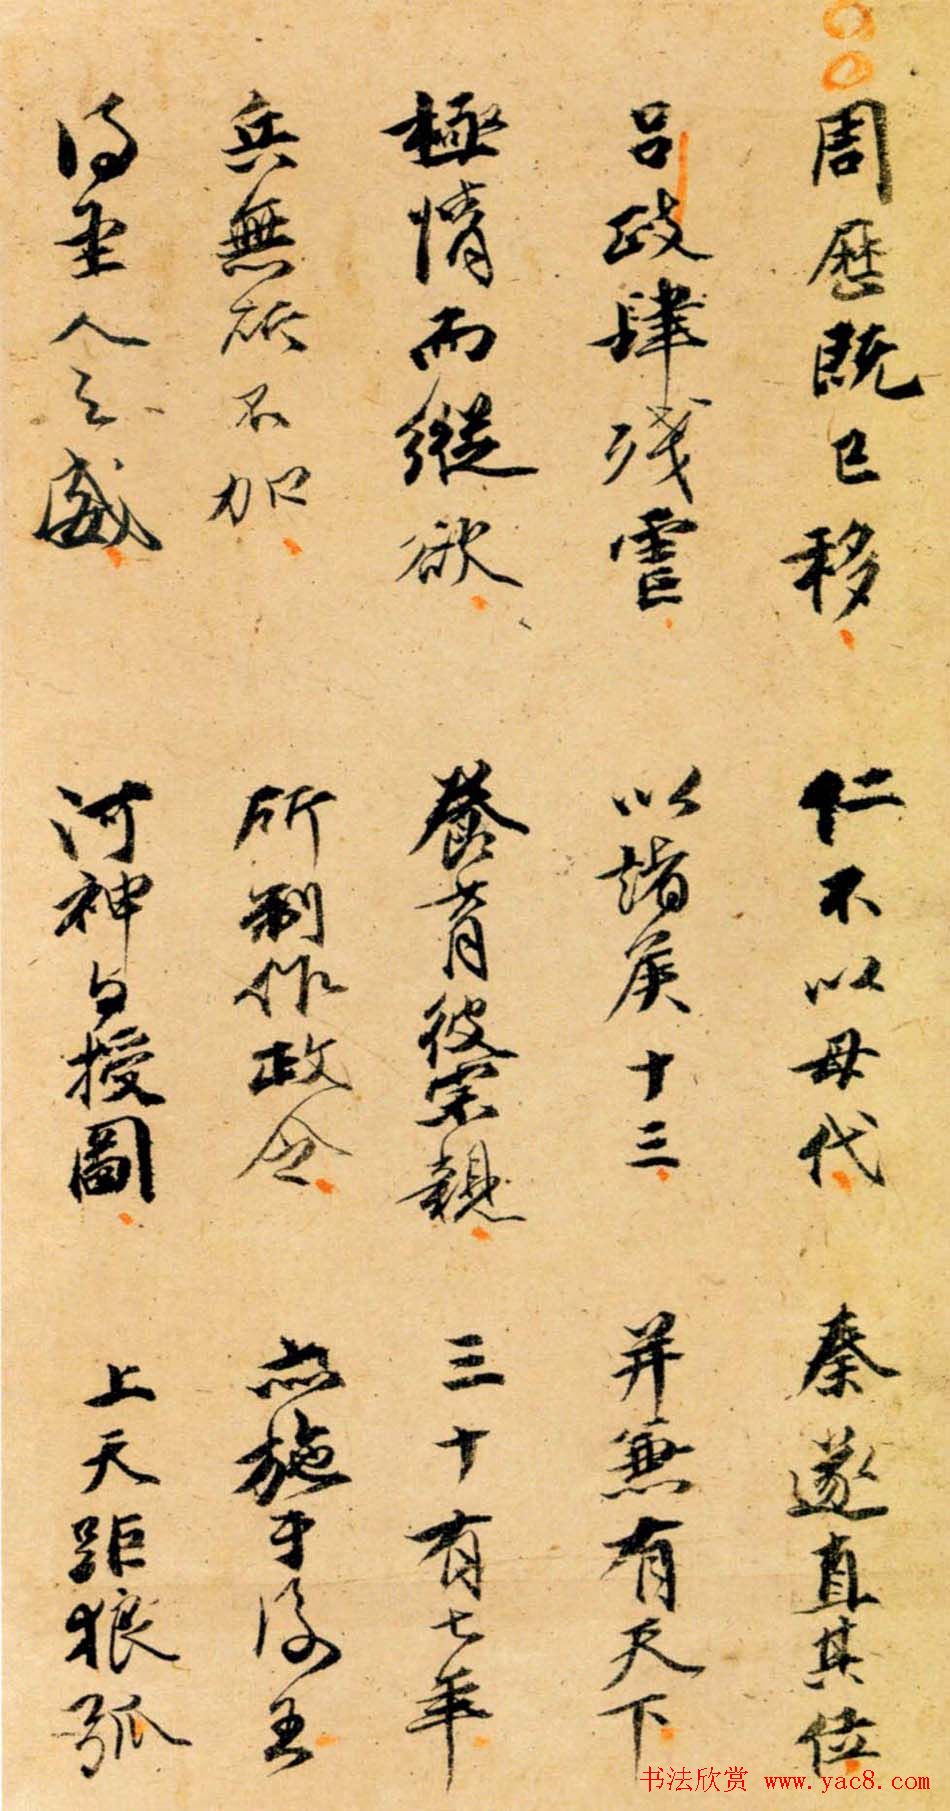 周歷既已移　仁不以母代　秦遂直其位
呂政肆殘虐　以諸侯十三　并兼有天下
極情而縱欲　養育彼宗親　三十有七年
兵無所不加　所制作政令　亦施于後王
得聖人之威　河神與授圖　上天距狼弧
书法欣赏 www.yac8.com